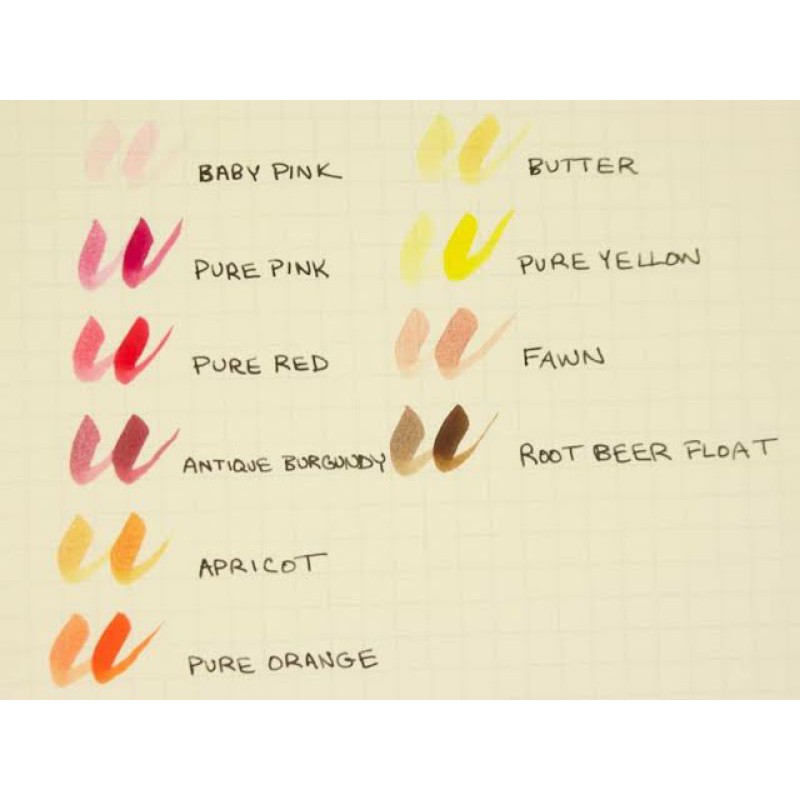 BABY PINK
PURE PINK
PURE RED
ANTIQUE BURGUNDY
APRICOT
PURE ORANGE
BUTTER
PURE YELLOW
FAWN
ROOT BEER FLOAT